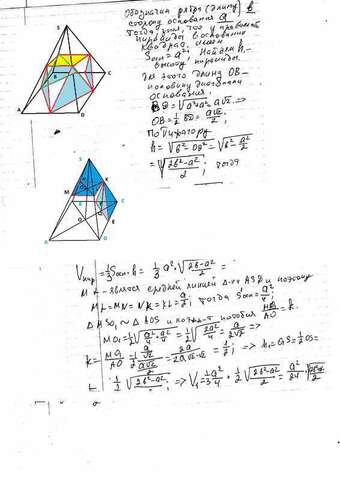 Обозначим ребра (длину) b
сторону основания a
Тогда, зная, что у правильной
пирамиды в основании
квадрат, имеем
Sосн = a²; Найдем h -
высоту пирамиды.
Для этого длину OB -
половину диагонали
основания.
BD = √a²+a² = a√2 ⇒
OB = ½ BD = a√2/2;
По Пифагору
h = √b² - OB² = √b² - a²/2
= √2b²-a²/2; тогда
S
B
C
A
D
S
M
K
B
C
A
D
Vпир = 1/3 Sосн·h = 1/3 a²·√2b²-a²/2 =
ML - является средней линией Δ-ка ASD и поэтому
ML = MN = NK = KL = a/2; тогда Sосн = a²/4;
Δ MSO₁ ~ Δ AOS и коэфф-т подобия
MO₁ = ½ √a²/4 + a²/4 = ½ √2a²/4 = a/2√2 ⇒
k = MO₁/AO
⇒ h₁ = O₁S = ½ OS =
½ √2b²-a²/2 ⇒ V₁ = 1/3 a²/4 · ½ √2b²-a²/2 = a²/24